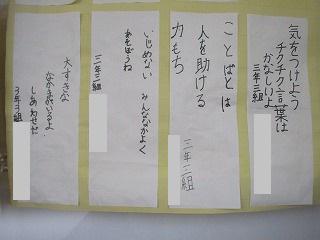 気をつけよう
チクチク言葉は
かなしいよ
三年三組
ことばとは
人を助ける
力もち
三年三組
いじめない みんななかよく
あそぼうね
三年三組
大すきな
なかまがいるよ
しあわせだ
3年3組